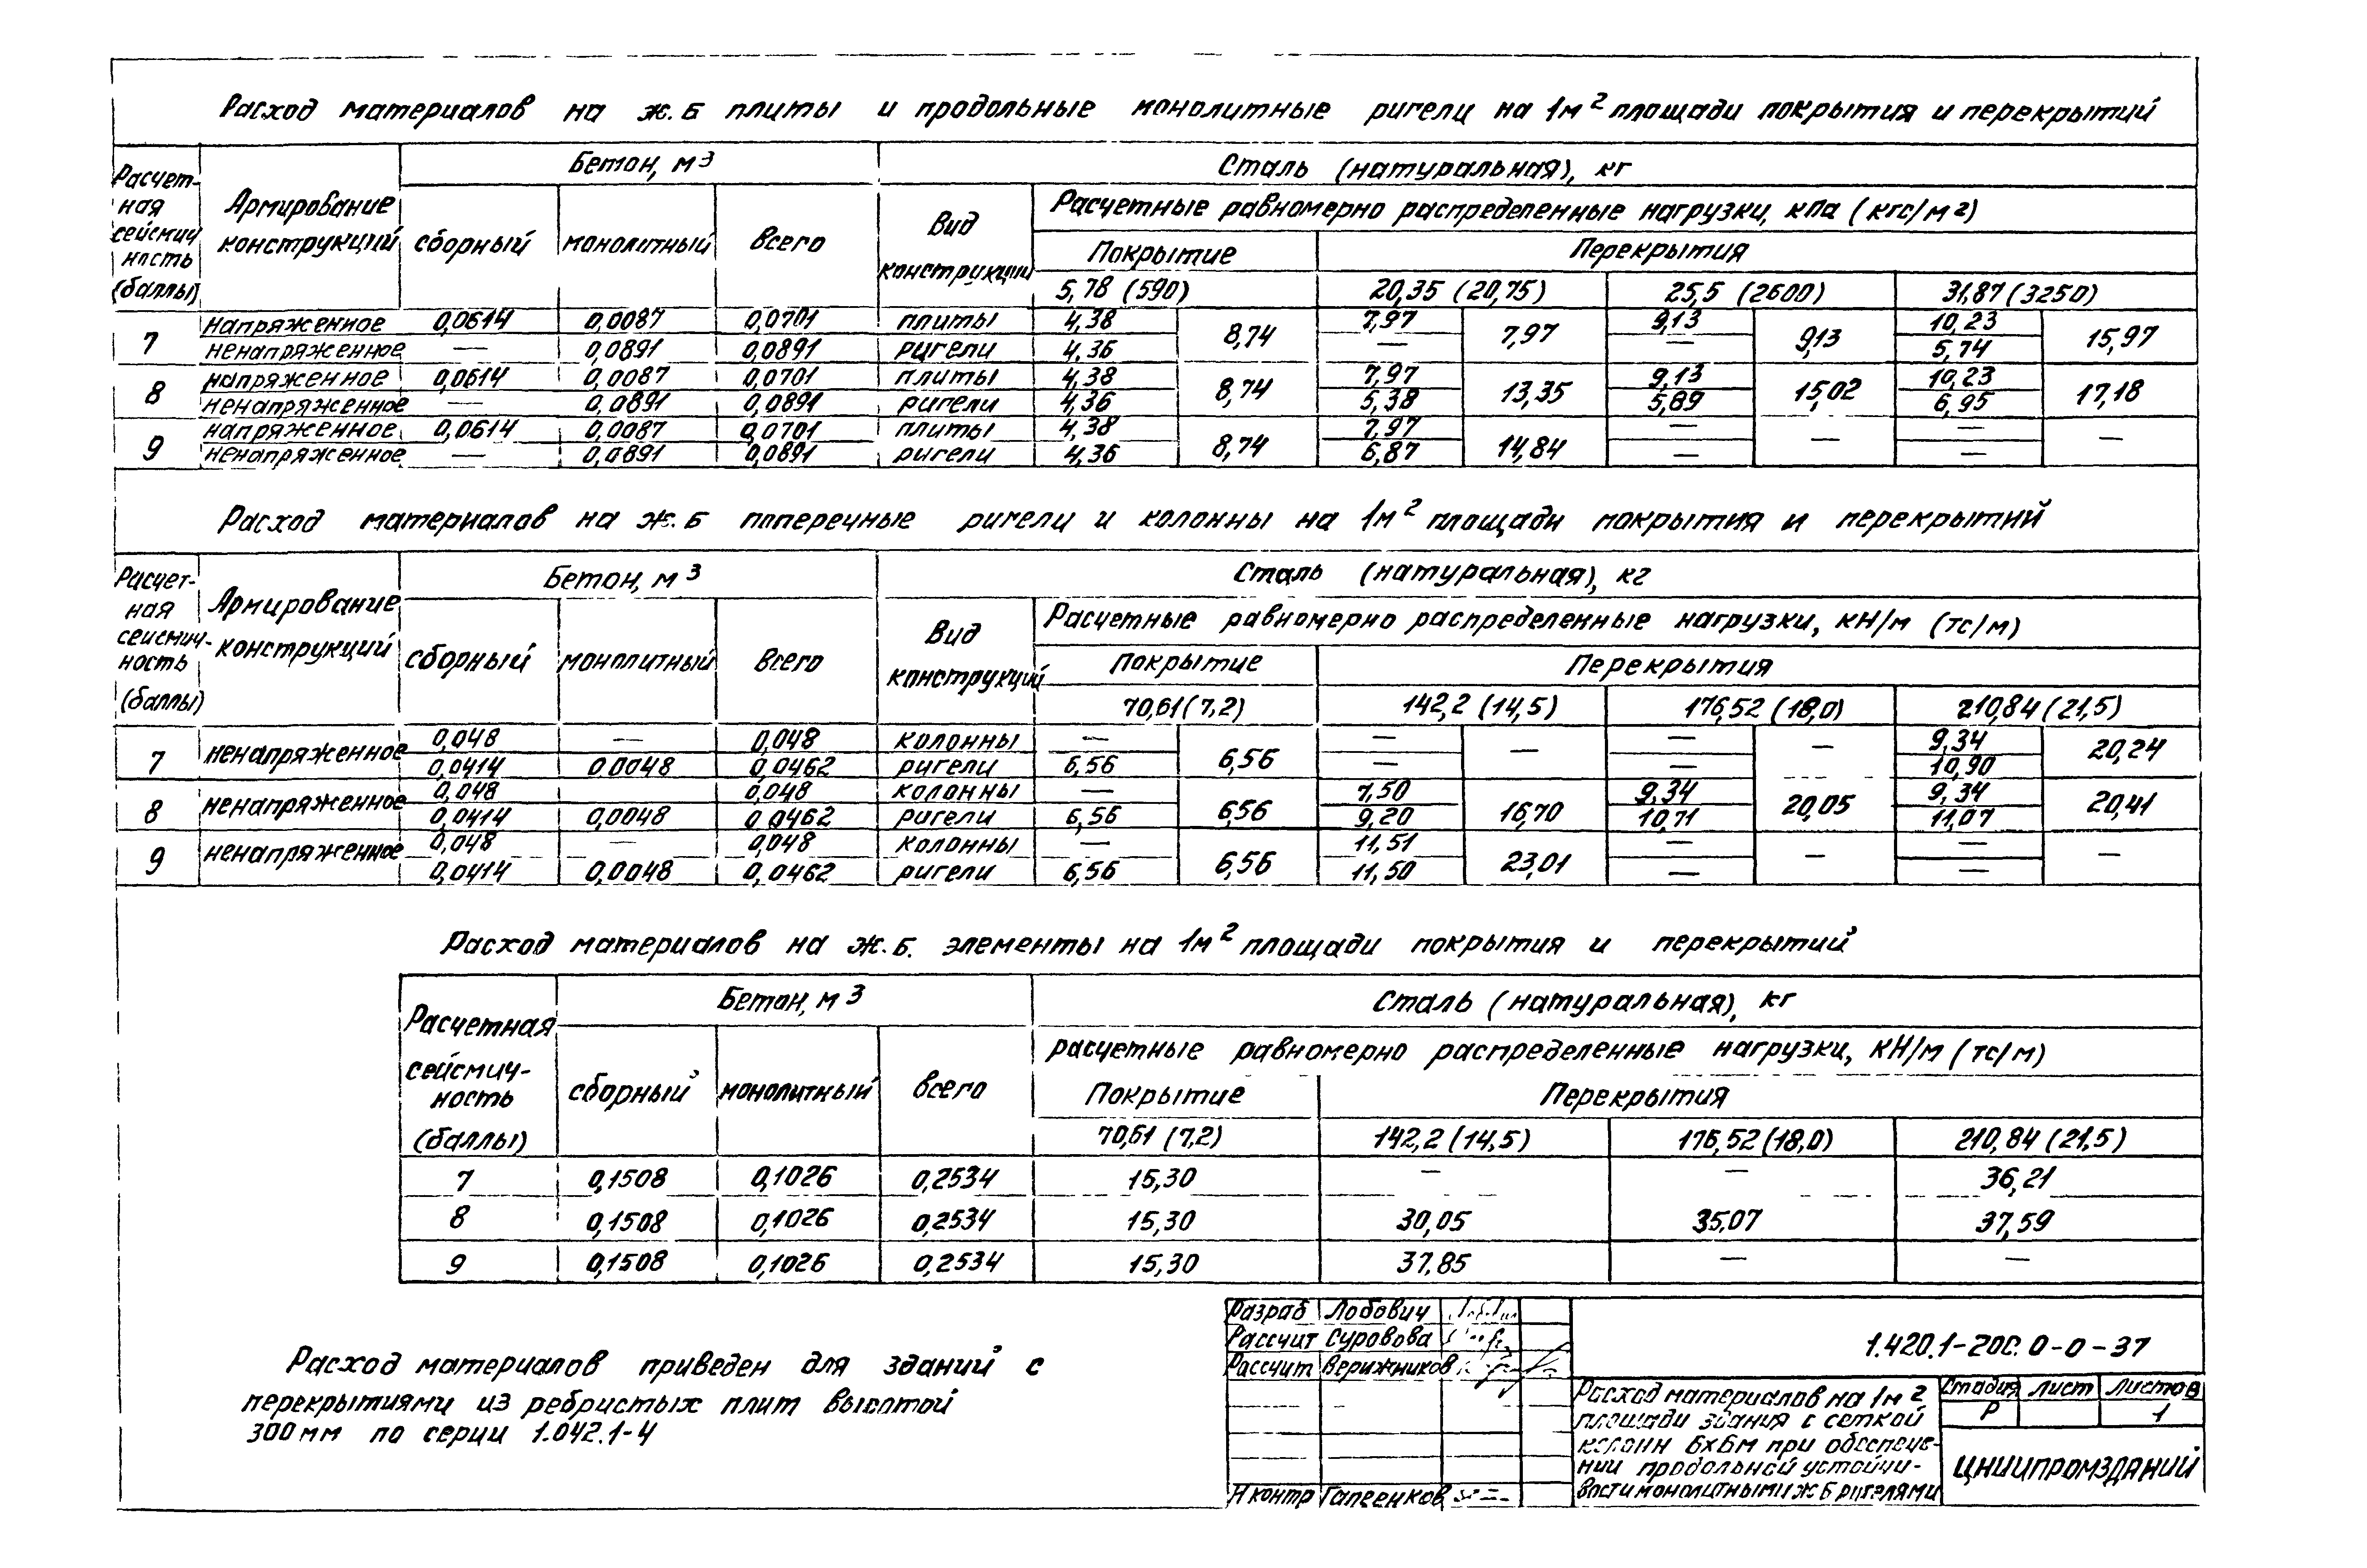 Расход материалов на ж.б плиты и продольные монолитные ригели на 1м² площади покрытия и перекрытий
Расчет-
ная
сейсмич
ность
(баллы)
Армирование
конструкций
Бетон, м³
сборный
монолитный
всего
Вид
конструкций
Сталь (натуральная), кг
Расчетные равномерно распределенные нагрузки, кПа (кгс/м²)
Покрытие
Перекрытия
5,78 (590)
20,35 (20,75)
25,5 (2600)
31,87 (3250)
7
напряженное 0,0614 0,0087 0,0701 плиты 4,38 8,74 7,97 7,97 9,13 9,13 10,23 15,97
ненапряженное — 0,0891 0,0891 ригели 4,36 — — 5,74
8
напряженное 0,0614 0,0087 0,0701 плиты 4,38 8,74 7,97 13,35 9,13 15,02 10,23 17,18
ненапряженное — 0,0891 0,0891 ригели 4,36 5,38 5,89 6,95
9
напряженное 0,0614 0,0087 0,0701 плиты 4,38 8,74 7,97 14,84 — — — —
ненапряженное — 0,0891 0,0891 ригели 4,36 6,87 — —
Расход материалов на ж.б поперечные ригели и колонны на 1м² площади покрытия и перекрытий
Расчет-
ная
сейсмич-
ность
(баллы)
Армирование
конструкций
Бетон, м³
сборный
монолитный
всего
Вид
конструкций
Сталь (натуральная), кг
Расчетные равномерно распределенные нагрузки, кН/м (тс/м)
Покрытие
Перекрытия
70,61 (7,2)
142,2 (14,5)
176,52 (18,0)
210,84 (21,5)
7 ненапряженное
0,048 — 0,048 колонны — 6,56 — — — — 9,34 20,24
0,0414 0,0048 0,0462 ригели 6,56 — — 10,90
8 ненапряженное
0,048 0,048 колонны — 6,56 7,50 16,70 9,34 20,05 9,34 20,41
0,0414 0,0048 0,0462 ригели 6,56 9,20 10,71 11,07
9 ненапряженное
0,048 — 0,048 колонны — 6,56 11,51 23,01 — — — —
0,0414 0,0048 0,0462 ригели 6,56 11,50 — —
Расход материалов на ж.б. элементы на 1м² площади покрытия и перекрытий
Расчетная
сейсмич-
ность
(баллы)
Бетон, м³
сборный
монолитный
всего
Сталь (натуральная), кг
расчетные равномерно распределенные нагрузки, кН/м (тс/м)
Покрытие
Перекрытия
70,61 (7,2)
142,2 (14,5)
176,52 (18,0)
210,84 (21,5)
7 0,1508 0,1026 0,2534 15,30 — — 36,21
8 0,1508 0,1026 0,2534 15,30 30,05 35,07 37,59
9 0,1508 0,1026 0,2534 15,30 37,85 — —
Расход материалов приведен для зданий с
перекрытиями из ребристых плит высотой
300 мм по серии 1.042.1-4
Разраб Лобович
Рассчит Суровова
Рассчит Верижников
Н контр Гапеенков
1.420.1-20С. 0-0-37
Расход материалов на 1м²
площади здания с сеткой
колонн 6х6м при обеспече-
нии продольной устойчи-
вости монолитными ж б ригелями
Стадия Лист Листов
Р 1
ЦНИИПРОМЗДАНИЙ